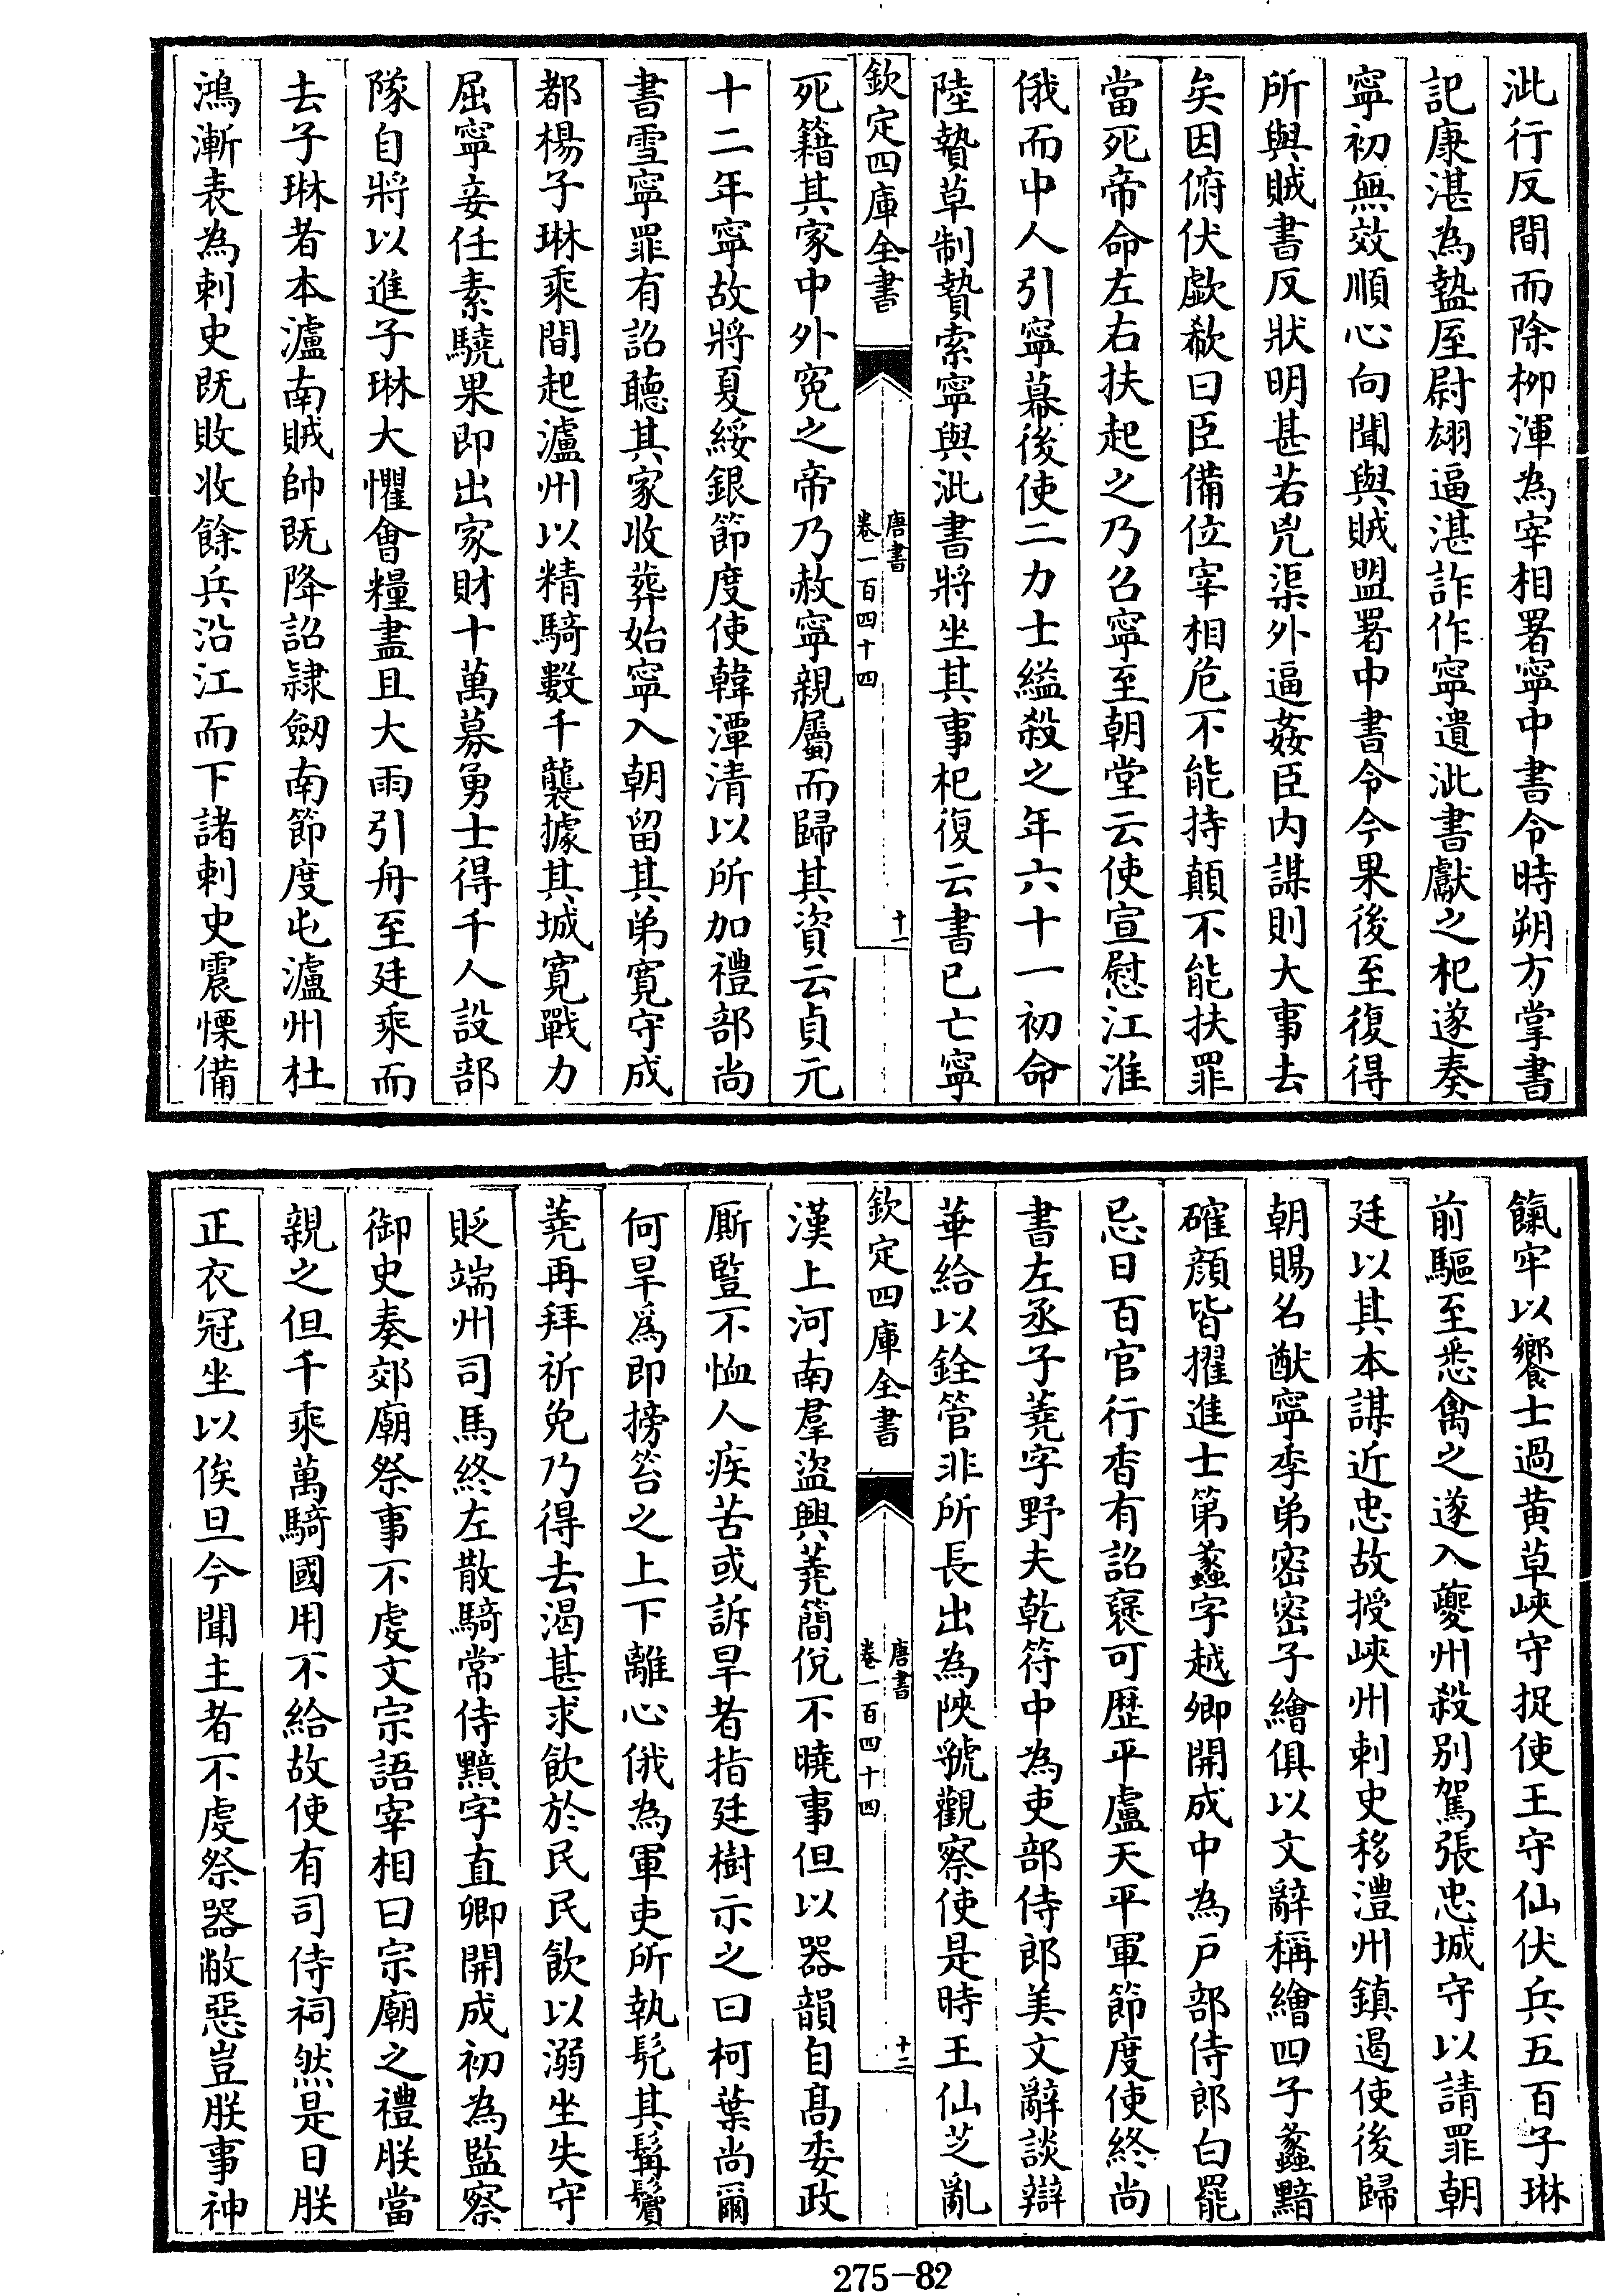 泚行反間而除栁渾為宰相署寧中書令時朔方掌書
記康湛為盩厔尉翃逼湛詐作寧遺泚書獻之杞遂奏
寧初無效順心向聞與賊盟署中書令今果後至復得
所與賊書反狀明甚若兇渠外逼姦臣内謀則大事去
矣因俯伏歔欷曰臣備位宰相危不能持顛不能扶罪
當死帝命左右扶起之乃召寧至朝堂云使宣慰江淮
俄而中人引寧幕後使二力士縊殺之年六十一初命
陸贄草制贄索寧與泚書將坐其事杞復云書已亡寧
欽定四庫全書
唐書
卷一百四十四
十一
死籍其家中外寃之帝乃赦寧親屬而歸其資云貞元
十二年寧故將夏綏銀節度使韓潭清以所加禮部尚
書雪寧罪有詔聽其家收葬始寧入朝留其弟寛守成
都楊子琳乘間起瀘州以精騎數千襲據其城寛戰力
屈寧妾任素驍果即出家財十萬募勇士得千人設部
隊自將以進子琳大懼會糧盡且大雨引舟至廷乘而
去子琳者本瀘南賊帥既降詔隷劔南節度屯瀘州杜
鴻漸表為刺史既敗收餘兵沿江而下諸刺史震慄備
餼牢以饗士過黄草峽守捉使王守仙伏兵五百子琳
前驅至悉禽之遂入䕫州殺别駕張忠城守以請罪朝
廷以其本謀近忠故授峽州刺史移澧州鎮遏使後歸
朝賜名猷寧季弟密密子繪俱以文辭稱繪四子蠡黯
確顔皆擢進士第蠡字越卿開成中為戸部侍郎白罷
忌日百官行香有詔褒可歴平盧天平軍節度使終尚
書左丞子蕘字野夫乾符中為吏部侍郎美文辭談辯
華給以銓管非所長出為陜虢觀察使是時王仙芝亂
欽定四庫全書
唐書
卷一百四十四
十二
漢上河南羣盜興蕘簡侻不曉事但以器韻自髙委政
厮豎不恤人疾苦或訴旱者指廷樹示之曰柯葉尚爾
何旱爲即搒笞之上下離心俄為軍吏所執髠其髯鬢
蕘再拜祈免乃得去渴甚求飲於民民飲以溺坐失守
貶端州司馬終左散騎常侍黯字直卿開成初為監察
御史奏郊廟祭事不虔文宗語宰相曰宗廟之禮朕當
親之但千乘萬騎國用不給故使有司侍祠然是日朕
正衣冠坐以俟旦今聞主者不虔祭器敝惡豈朕事神
275-82